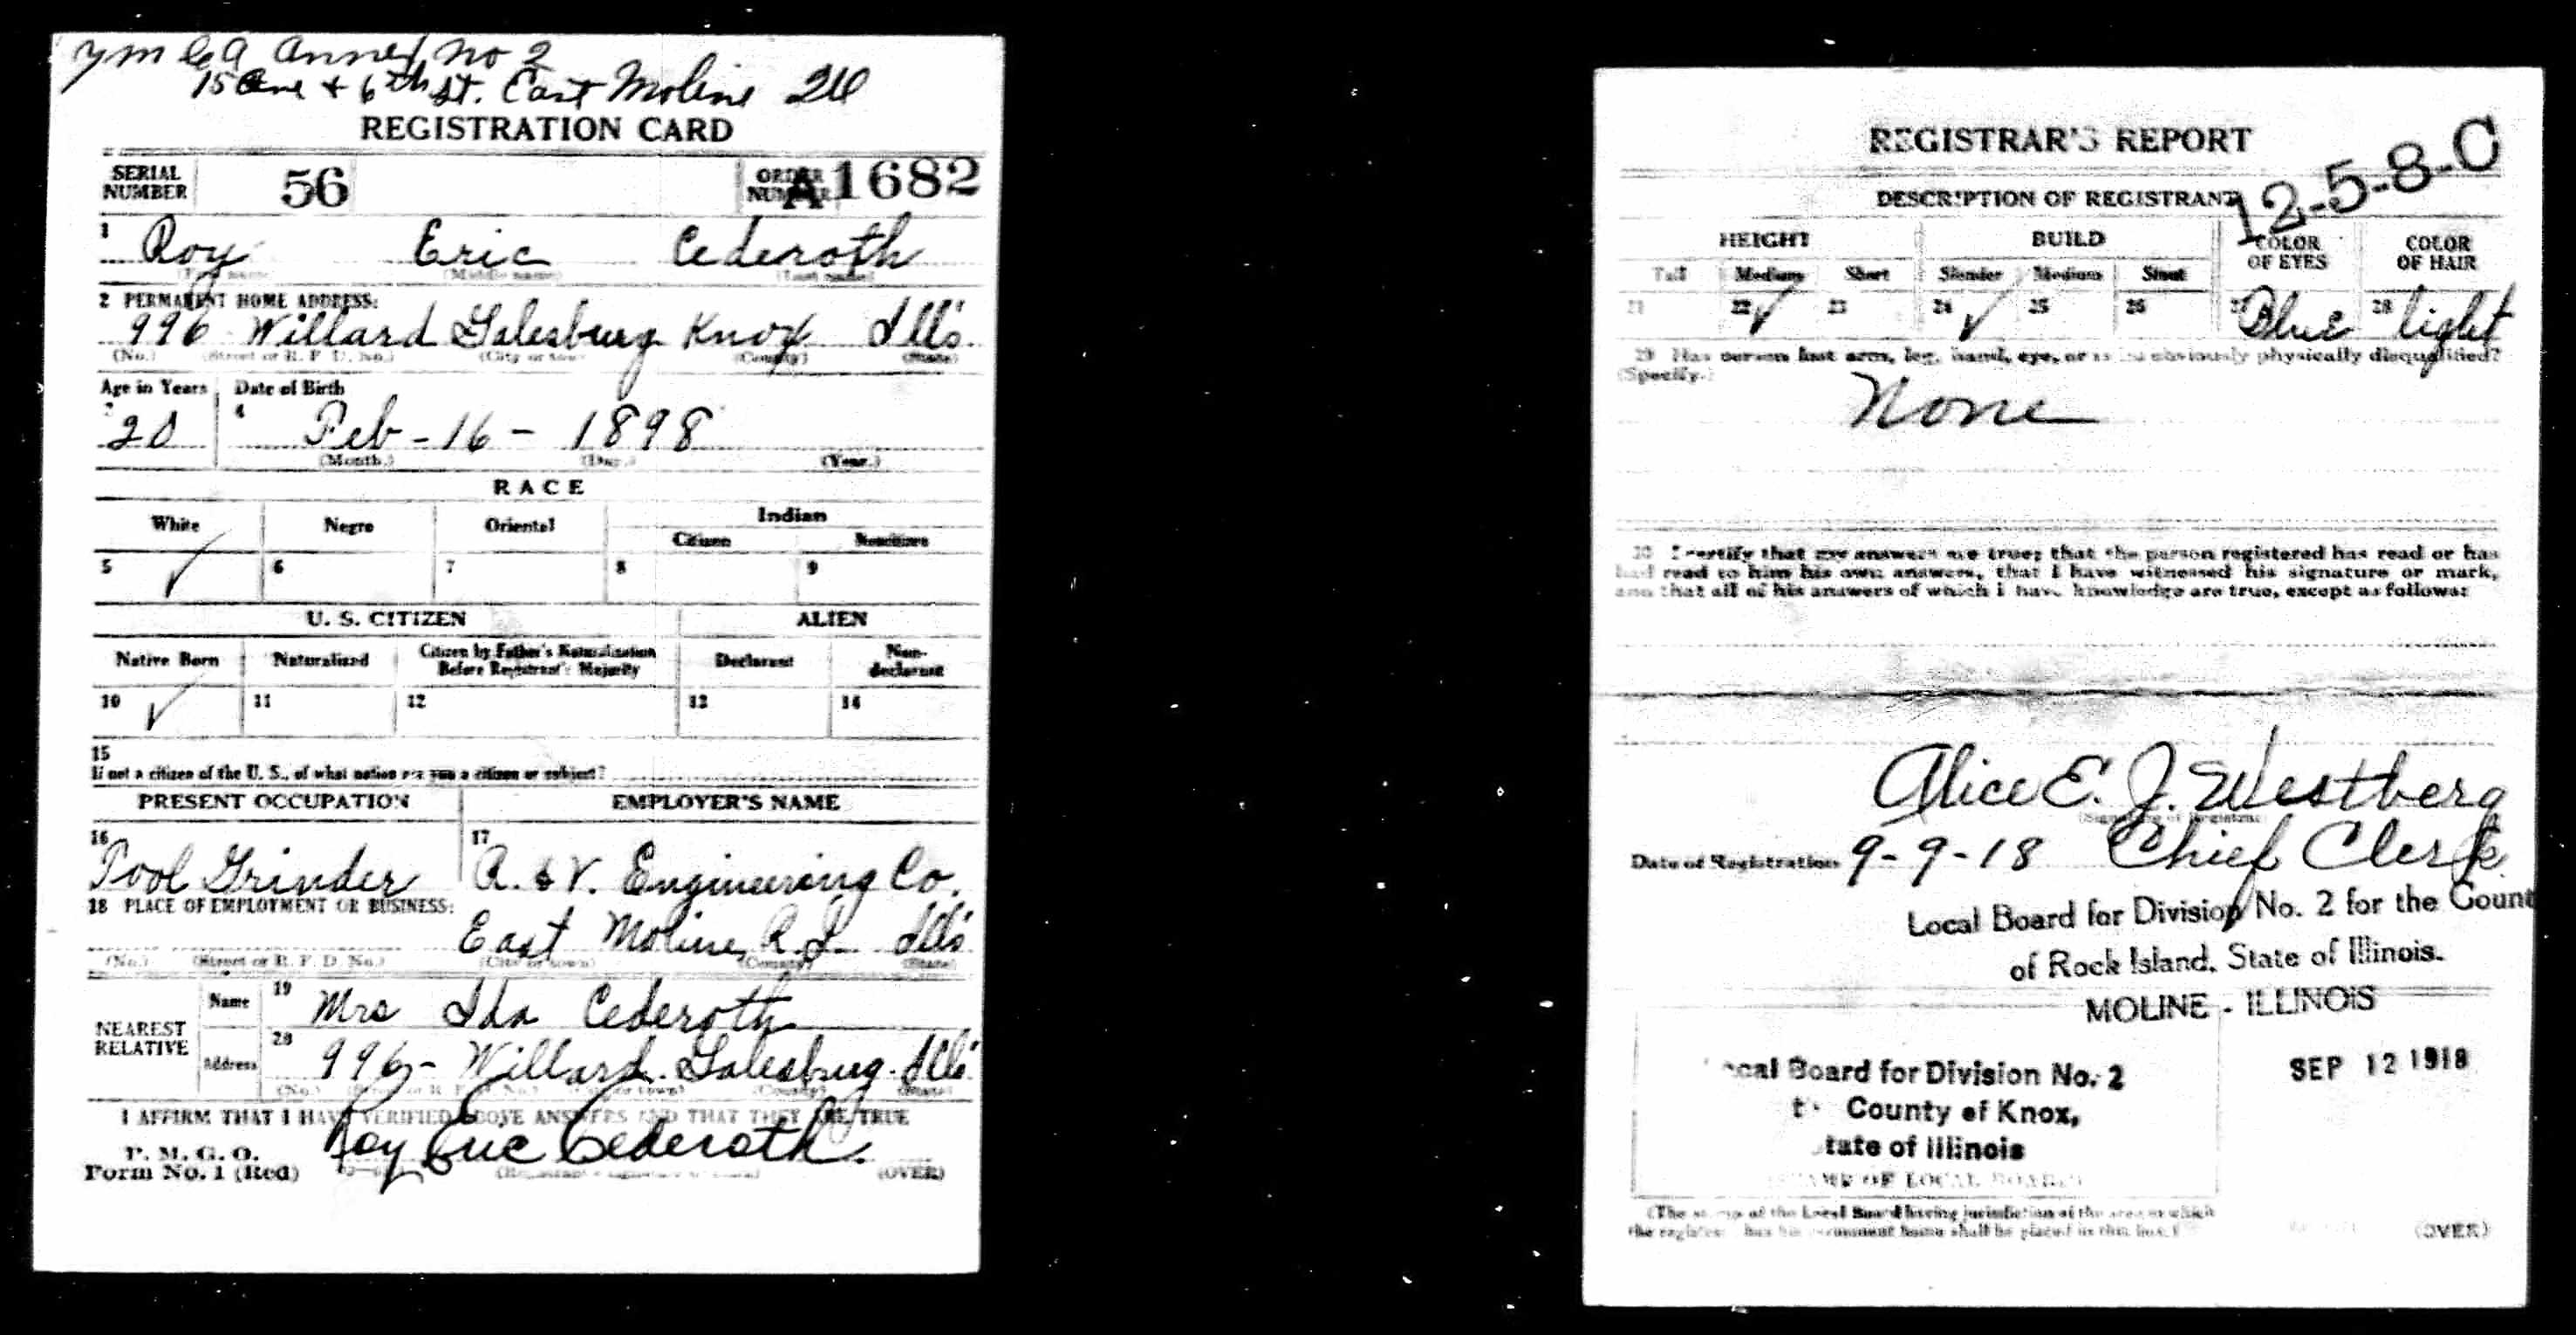 YMCA Annex No 2
15 Ave & 6th St. East Moline Ill
REGISTRATION CARD
SERIAL NUMBER 56 ORDER NUMBER A1682
1 Roy Eric Cederoth
(First name) (Middle name) (Last name)
2 PERMANENT HOME ADDRESS:
996 Willard Galesburg Knox Ills
(No.) (Street or R. F. D. No.) (City or town) (County) (State)
Age in Years Date of Birth
3 20 4 Feb - 16 - 1898
(Month.) (Day.) (Year.)
RACE
White Negro Oriental Indian
Citizen Noncitizen
5 ✓ 6 7 8 9
U. S. CITIZEN ALIEN
Native Born Naturalized Citizen by Father's Naturalization Before Registrant's Majority Declarant Non-declarant
10 ✓ 11 12 13 14
15
If not a citizen of the U. S., of what nation are you a citizen or subject?
PRESENT OCCUPATION EMPLOYER'S NAME
16 Tool Grinder 17 R. & V. Engineering Co.
18 PLACE OF EMPLOYMENT OR BUSINESS:
East Moline, R.I. Ills
(No.) (Street or R. F. D. No.) (City or town) (County) (State)
NEAREST RELATIVE
Name 19 Mrs Ida Cederoth
Address 20 996 - Willard. Galesburg. Ills
(No.) (County) (State)
I AFFIRM THAT I HAVE VERIFIED ABOVE ANSWERS AND THAT THEY ARE TRUE
P. M. G. O.
Form No. 1 (Red) Roy Eric Cederoth. (OVER)
REGISTRAR'S REPORT
12-5-8-C
DESCRIPTION OF REGISTRANT
HEIGHT BUILD COLOR OF EYES COLOR OF HAIR
Tall Medium Short Slender Medium Stout
21 22 ✓ 23 24 ✓ 25 26 27 Blue 28 light
29 Has person lost arm, leg, hand, eye, or is he obviously physically disqualified?
(Specify.)
None
30 I certify that my answers are true; that the person registered has read or has
had read to him his own answers, that I have witnessed his signature or mark,
and that all of his answers of which I have knowledge are true, except as follows:
Alice E. J. Westberg
(Signature of Registrar)
Date of Registration 9-9-18 Chief Clerk
Local Board for Division No. 2 for the Count
of Rock Island, State of Illinois.
MOLINE - ILLINOIS
SEP 12 1918
cal Board for Division No. 2
County of Knox,
tate of Illinois
OF LOCAL BOARD
(The stamp of the Local Board having jurisdiction of the area in which
the registrant has his permanent home shall be placed in this box.)
(OVER)